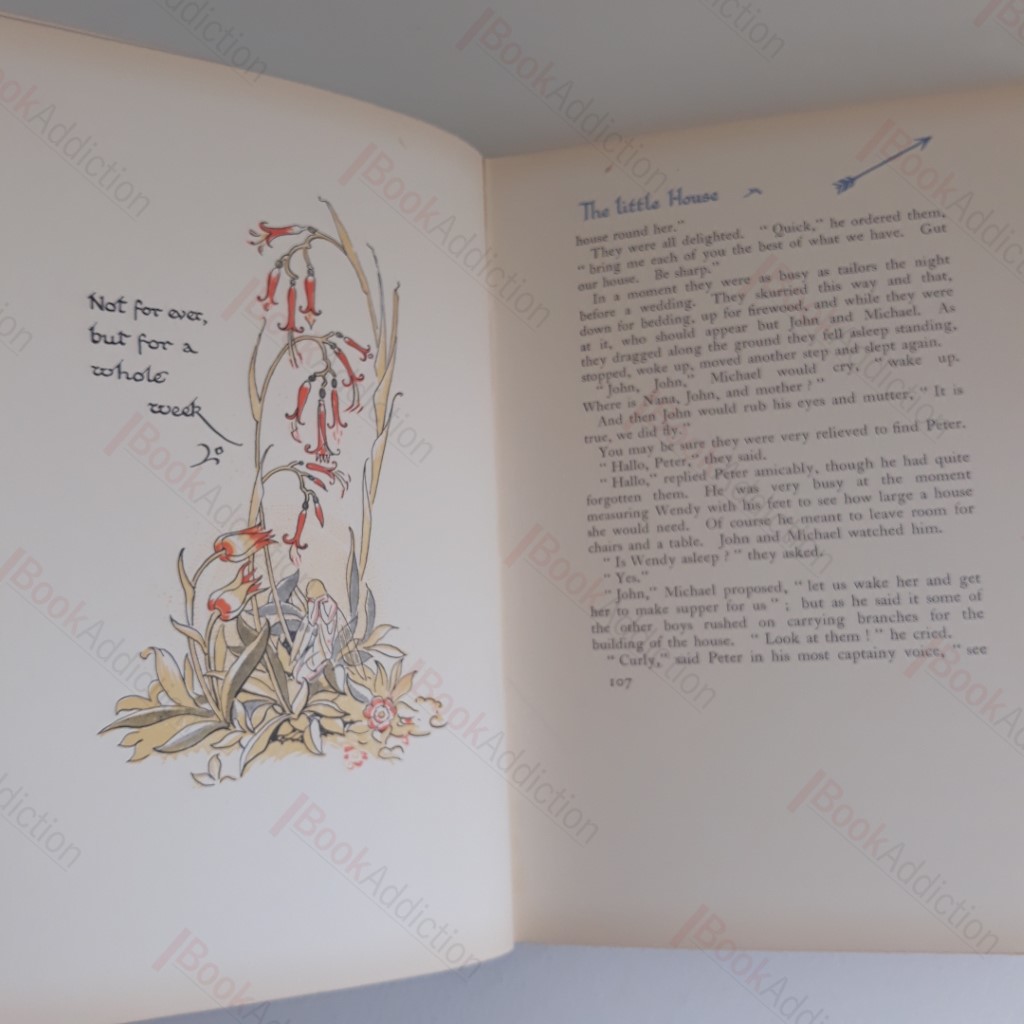 Not for ever,
but for a
whole
week
The little House
house round her."
They were all delighted. "Quick," he ordered them,
"bring me each of you the best of what we have. Gut
our house. Be sharp."
In a moment they were as busy as tailors the night
before a wedding. They skurried this way and that,
down for bedding, up for firewood, and while they were
at it, who should appear but John and Michael. As
they dragged along the ground they fell asleep standing,
stopped, woke up, moved another step and slept again.
"John, John," Michael would cry, "wake up.
Where is Nana, John, and mother?"
And then John would rub his eyes and mutter, "It is
true, we did fly."
You may be sure they were very relieved to find Peter.
"Hallo, Peter," they said.
"Hallo," replied Peter amicably, though he had quite
forgotten them. He was very busy at the moment
measuring Wendy with his feet to see how large a house
she would need. Of course he meant to leave room for
chairs and a table. John and Michael watched him.
"Is Wendy asleep?" they asked.
"Yes."
"John," Michael proposed, "let us wake her and get
her to make supper for us"; but as he said it some of
the other boys rushed on carrying branches for the
building of the house. "Look at them!" he cried.
"Curly," said Peter in his most captainy voice, "see
107
BookAddiction